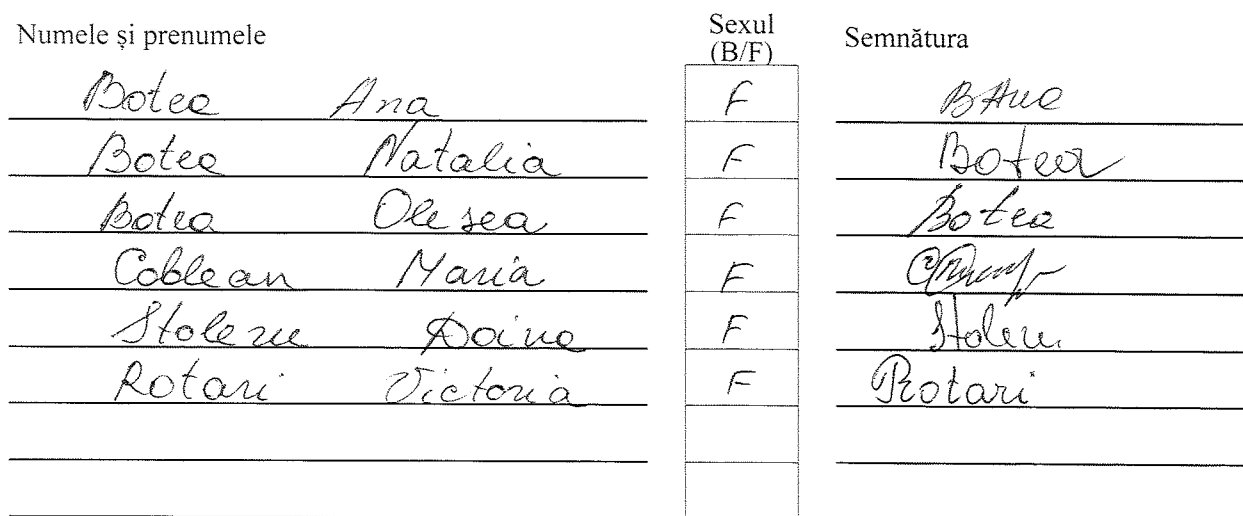 Numele și prenumele Sexul (B/F) Semnătura
Botea Ana F BAna
Botea Natalia F Botea
Botea Olesea F Botea
Coblean Maria F
Stoleru Doina F Stoleru
Rotari Victoria F Rotari